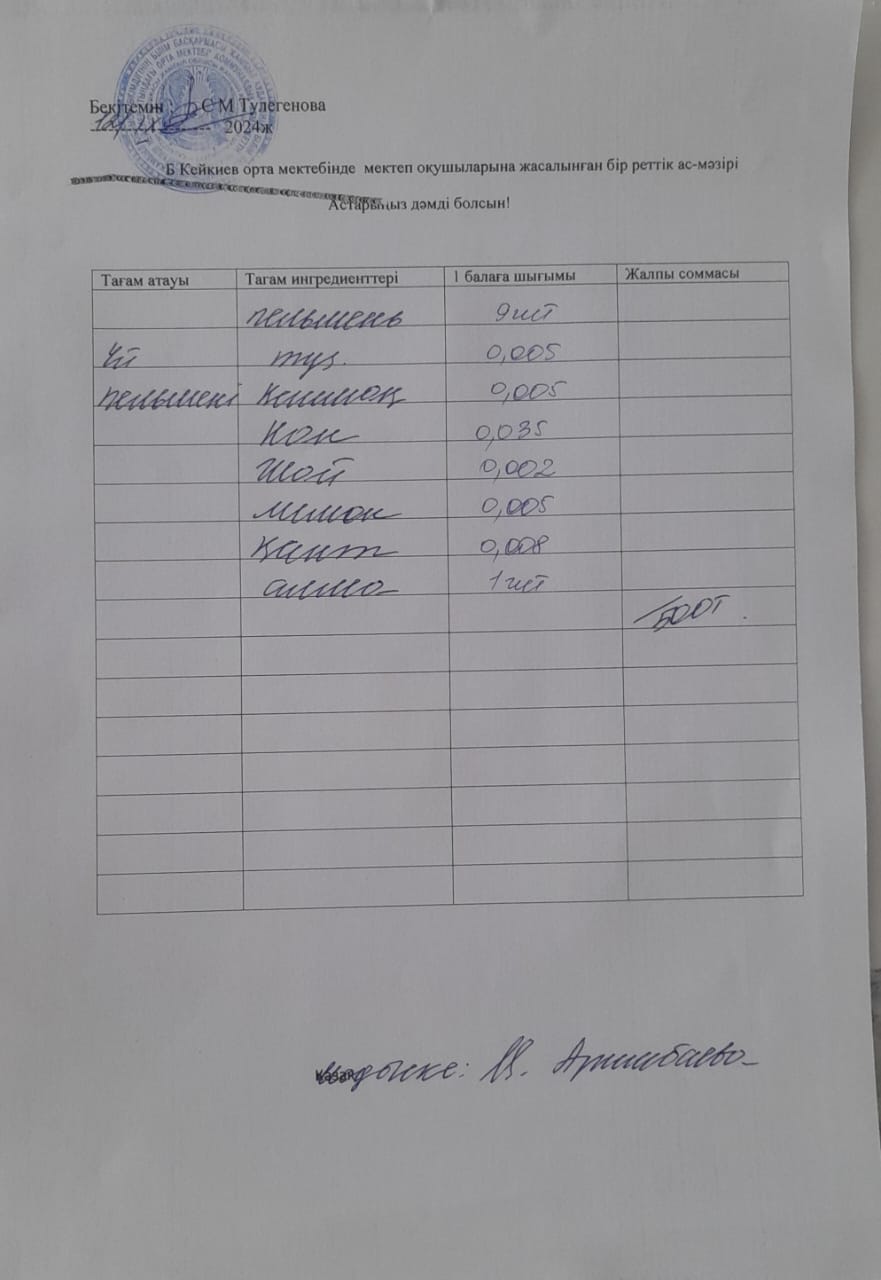 Бекітемін : С М Тулегенова
12/IX 2024ж
Б Кейкиев орта мектебінде мектеп оқушыларына жасалынған бір реттік ас-мәзірі
Астарыңыз дәмді болсын!
Тағам атауы Тағам ингредиенттері 1 балаға шығымы Жалпы соммасы
пельмень 9шт
Үй тұз. 0,005
пельмені Қаймақ 0,005
Нан 0,035
Шай 0,002
лимон 0,005
Қант 0,008
алма 1 шт
500т.